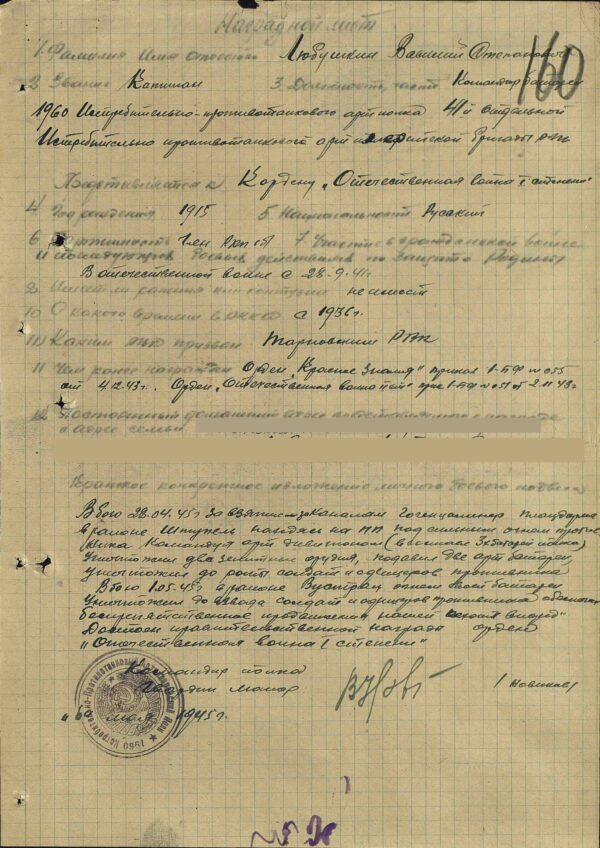 Наградной лист
160
1. Фамилия Имя Отчество Любушкин Василий Степанович
2 Звание Капитан 3. Должность, часть Командир батареи
1960 Истребительно-противотанкового артполка 41й отдельной
Истребительно противотанковой артиллерийской бригады РГК
Представляется к К ордену „Отечественная война I степени"
4 Год рождения 1915 5 Национальность Русский
6 Партийность Член ВКП(б) 7 Участие в гражданской войне
и последующих боевых действиях по защите Родины
В отечественной войне с 28-9.41г
8 Имеет ли ранения или контузии не имеет
10 С какого времени в РККА с 1936г.
10 Каким РВК призван РВК
11 Чем ранее награжден Орден „Красное Знамя" приказ 1-БФ № 055
от 4.12.43г. Орден „Отечественная война" 1-БФ № от 2.11.43г
12 Постоянный домашний адрес представляемого к награде
и адрес семьи
Краткое конкретное изложение личного боевого подвига
В бою 28.04.45г За взятие за Каналом Гогенцоллерн плацдарма
в районе находясь на НП под сильным огнем против
ника Командуя арт дивизионом (в составе 3х батарей полка)
Уничтожил два зенитных орудия, подавил две арт батареи,
уничтожил до роты солдат и офицеров противника
В бою 1.05.45г в районе Вустрау огнем своей батареи
Уничтожил до взвода солдат и офицеров противника обеспечил
беспрепятственное продвижение нашей пехоты вперед
Достоин правительственной награды ордена
"Отечественная война I степени"
Командир полка
Гвардии майор / Новиков /
" 6 " мая 1945г.